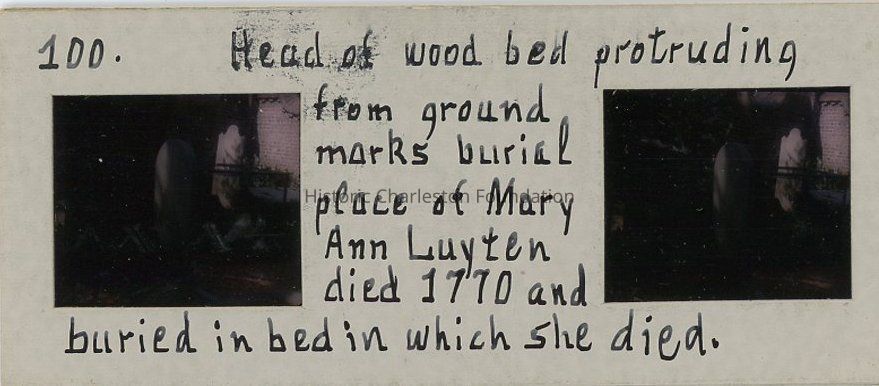 100. Head of wood bed protruding
from ground
marks burial
Historic Charleston Foundation
place of Mary
Ann Luyten
died 1770 and
buried in bed in which she died.